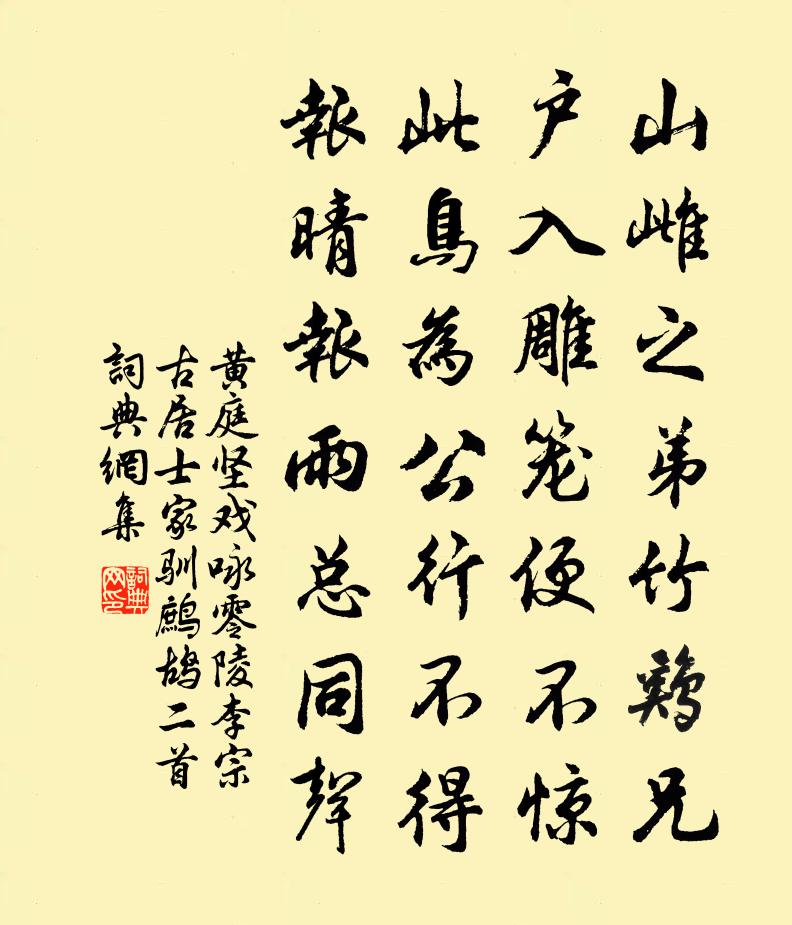 山雌之弟竹鷄兄
户入雕笼便不惊
此鳥為公行不得
報晴報雨总同聲
黄庭坚戏咏零陵李宗
古居士家驯鷓鴣二首
詞典網集
詞典
网印